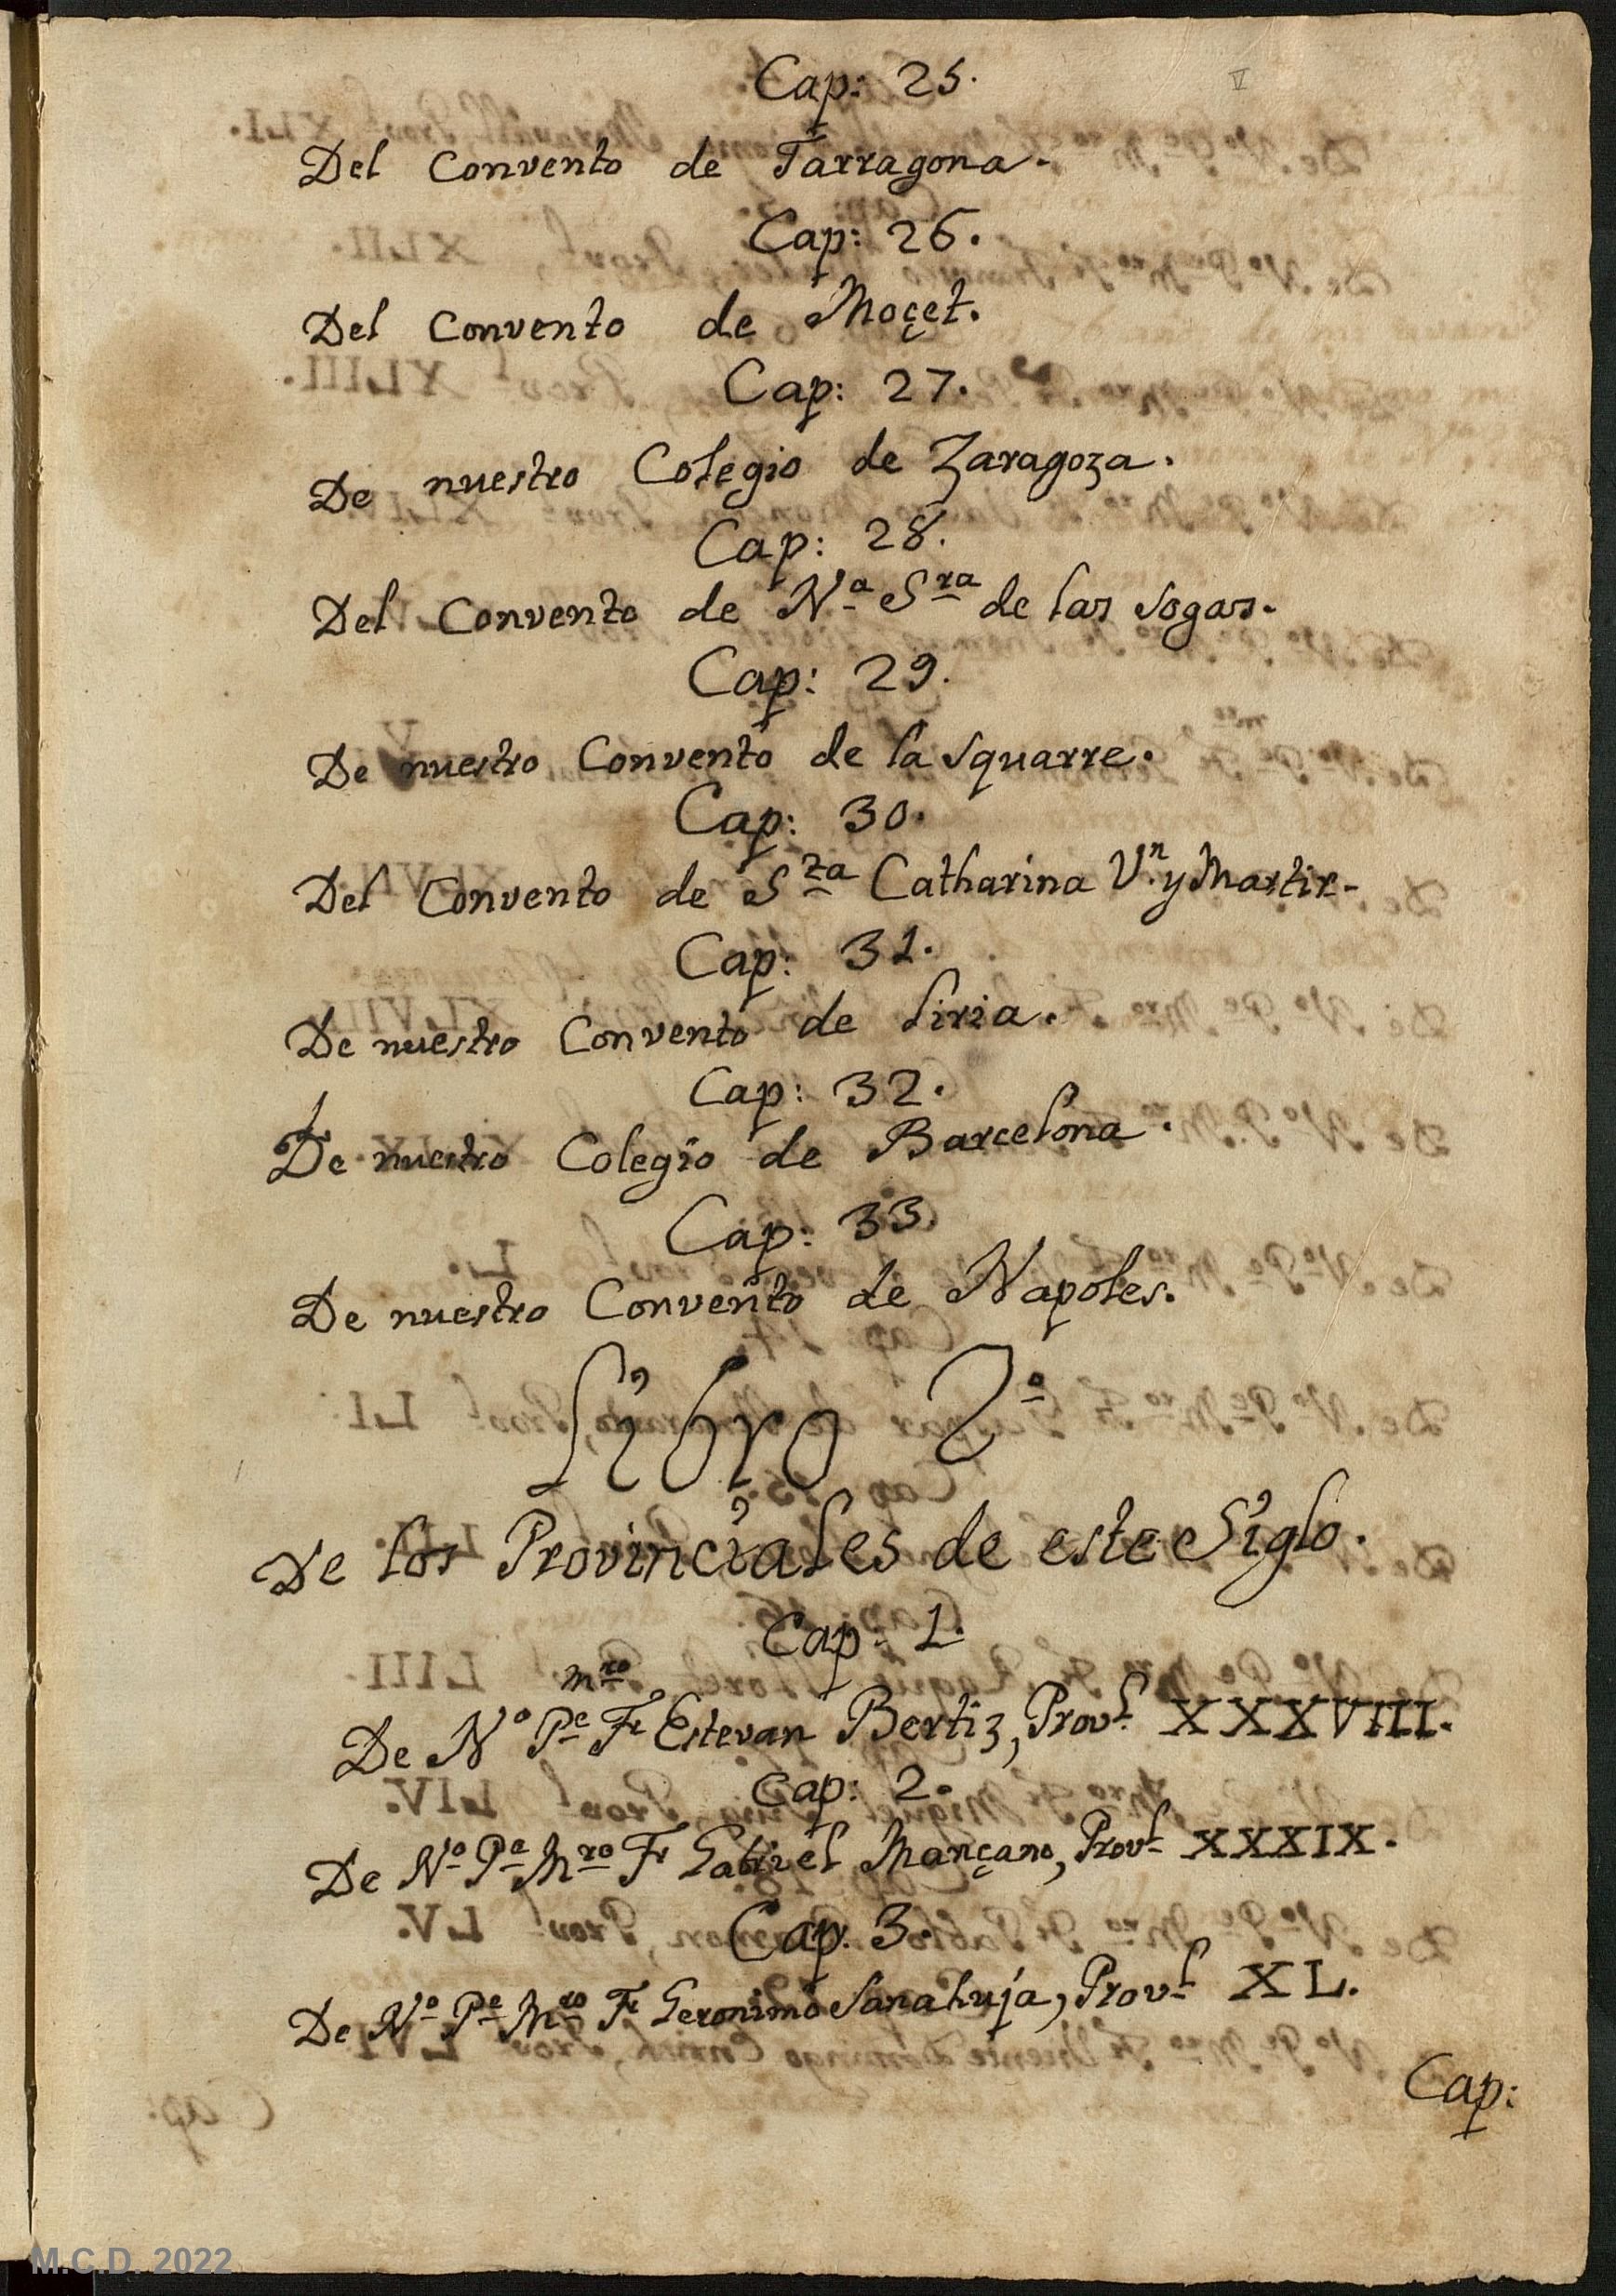 V
Cap: 25.
Del Convento de Tarragona.
Cap: 26.
Del Convento de Moçet.
Cap: 27.
De nuestro Colegio de Zaragoza.
Cap: 28.
Del Convento de Nª Sra de las Sogas.
Cap: 29.
De nuestro Convento de la Squarre.
Cap: 30.
Del Convento de Sta Catharina Vn. y Martir.
Cap: 31.
De nuestro Convento de Liria.
Cap: 32.
De nuestro Colegio de Barcelona.
Cap: 33.
De nuestro Convento de Napoles.
Libro 2º
De los Provinciales de este Siglo.
Cap: 1.
De Nº Pe mro Fr Estevan Bertiz, Provl. XXXVIII.
Cap: 2.
De Nº Pe Mro Fr Gabriel Mançano, Provl XXXIX.
Cap. 3.
De Nº Pe Mro Fr Geronimo Sanahuja, Provl XL.
Cap:
M.C.D. 2022